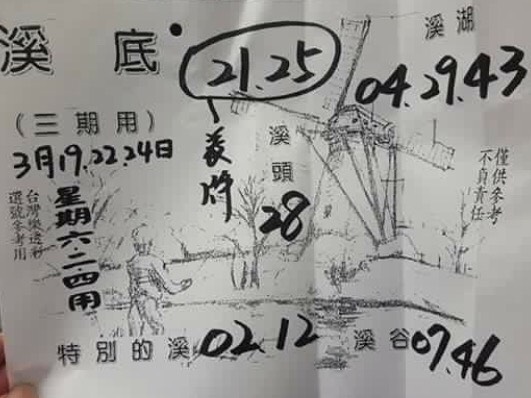 溪底
21.25
溪湖
04.29.43
（三期用）
3月19.22.24日
星期六.二.四用
台灣樂透彩
選號參考用
溪頭
28
僅供參考
不負責任
特別的溪
02.12
溪谷
07.46